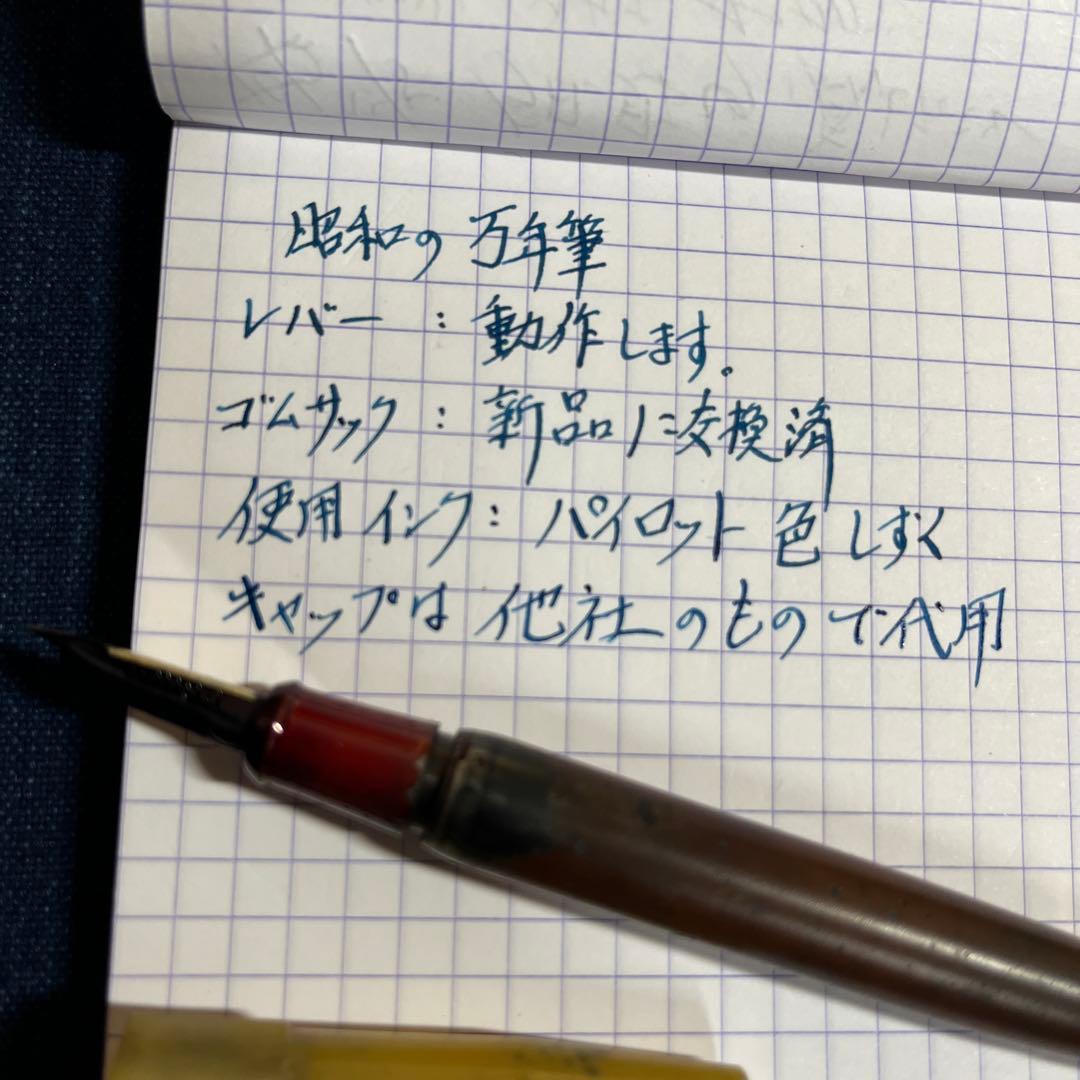 昭和の万年筆
レバー：動作します。
ゴムサック：新品に交換済
使用インク：パイロット色しずく
キャップは他社のもので代用